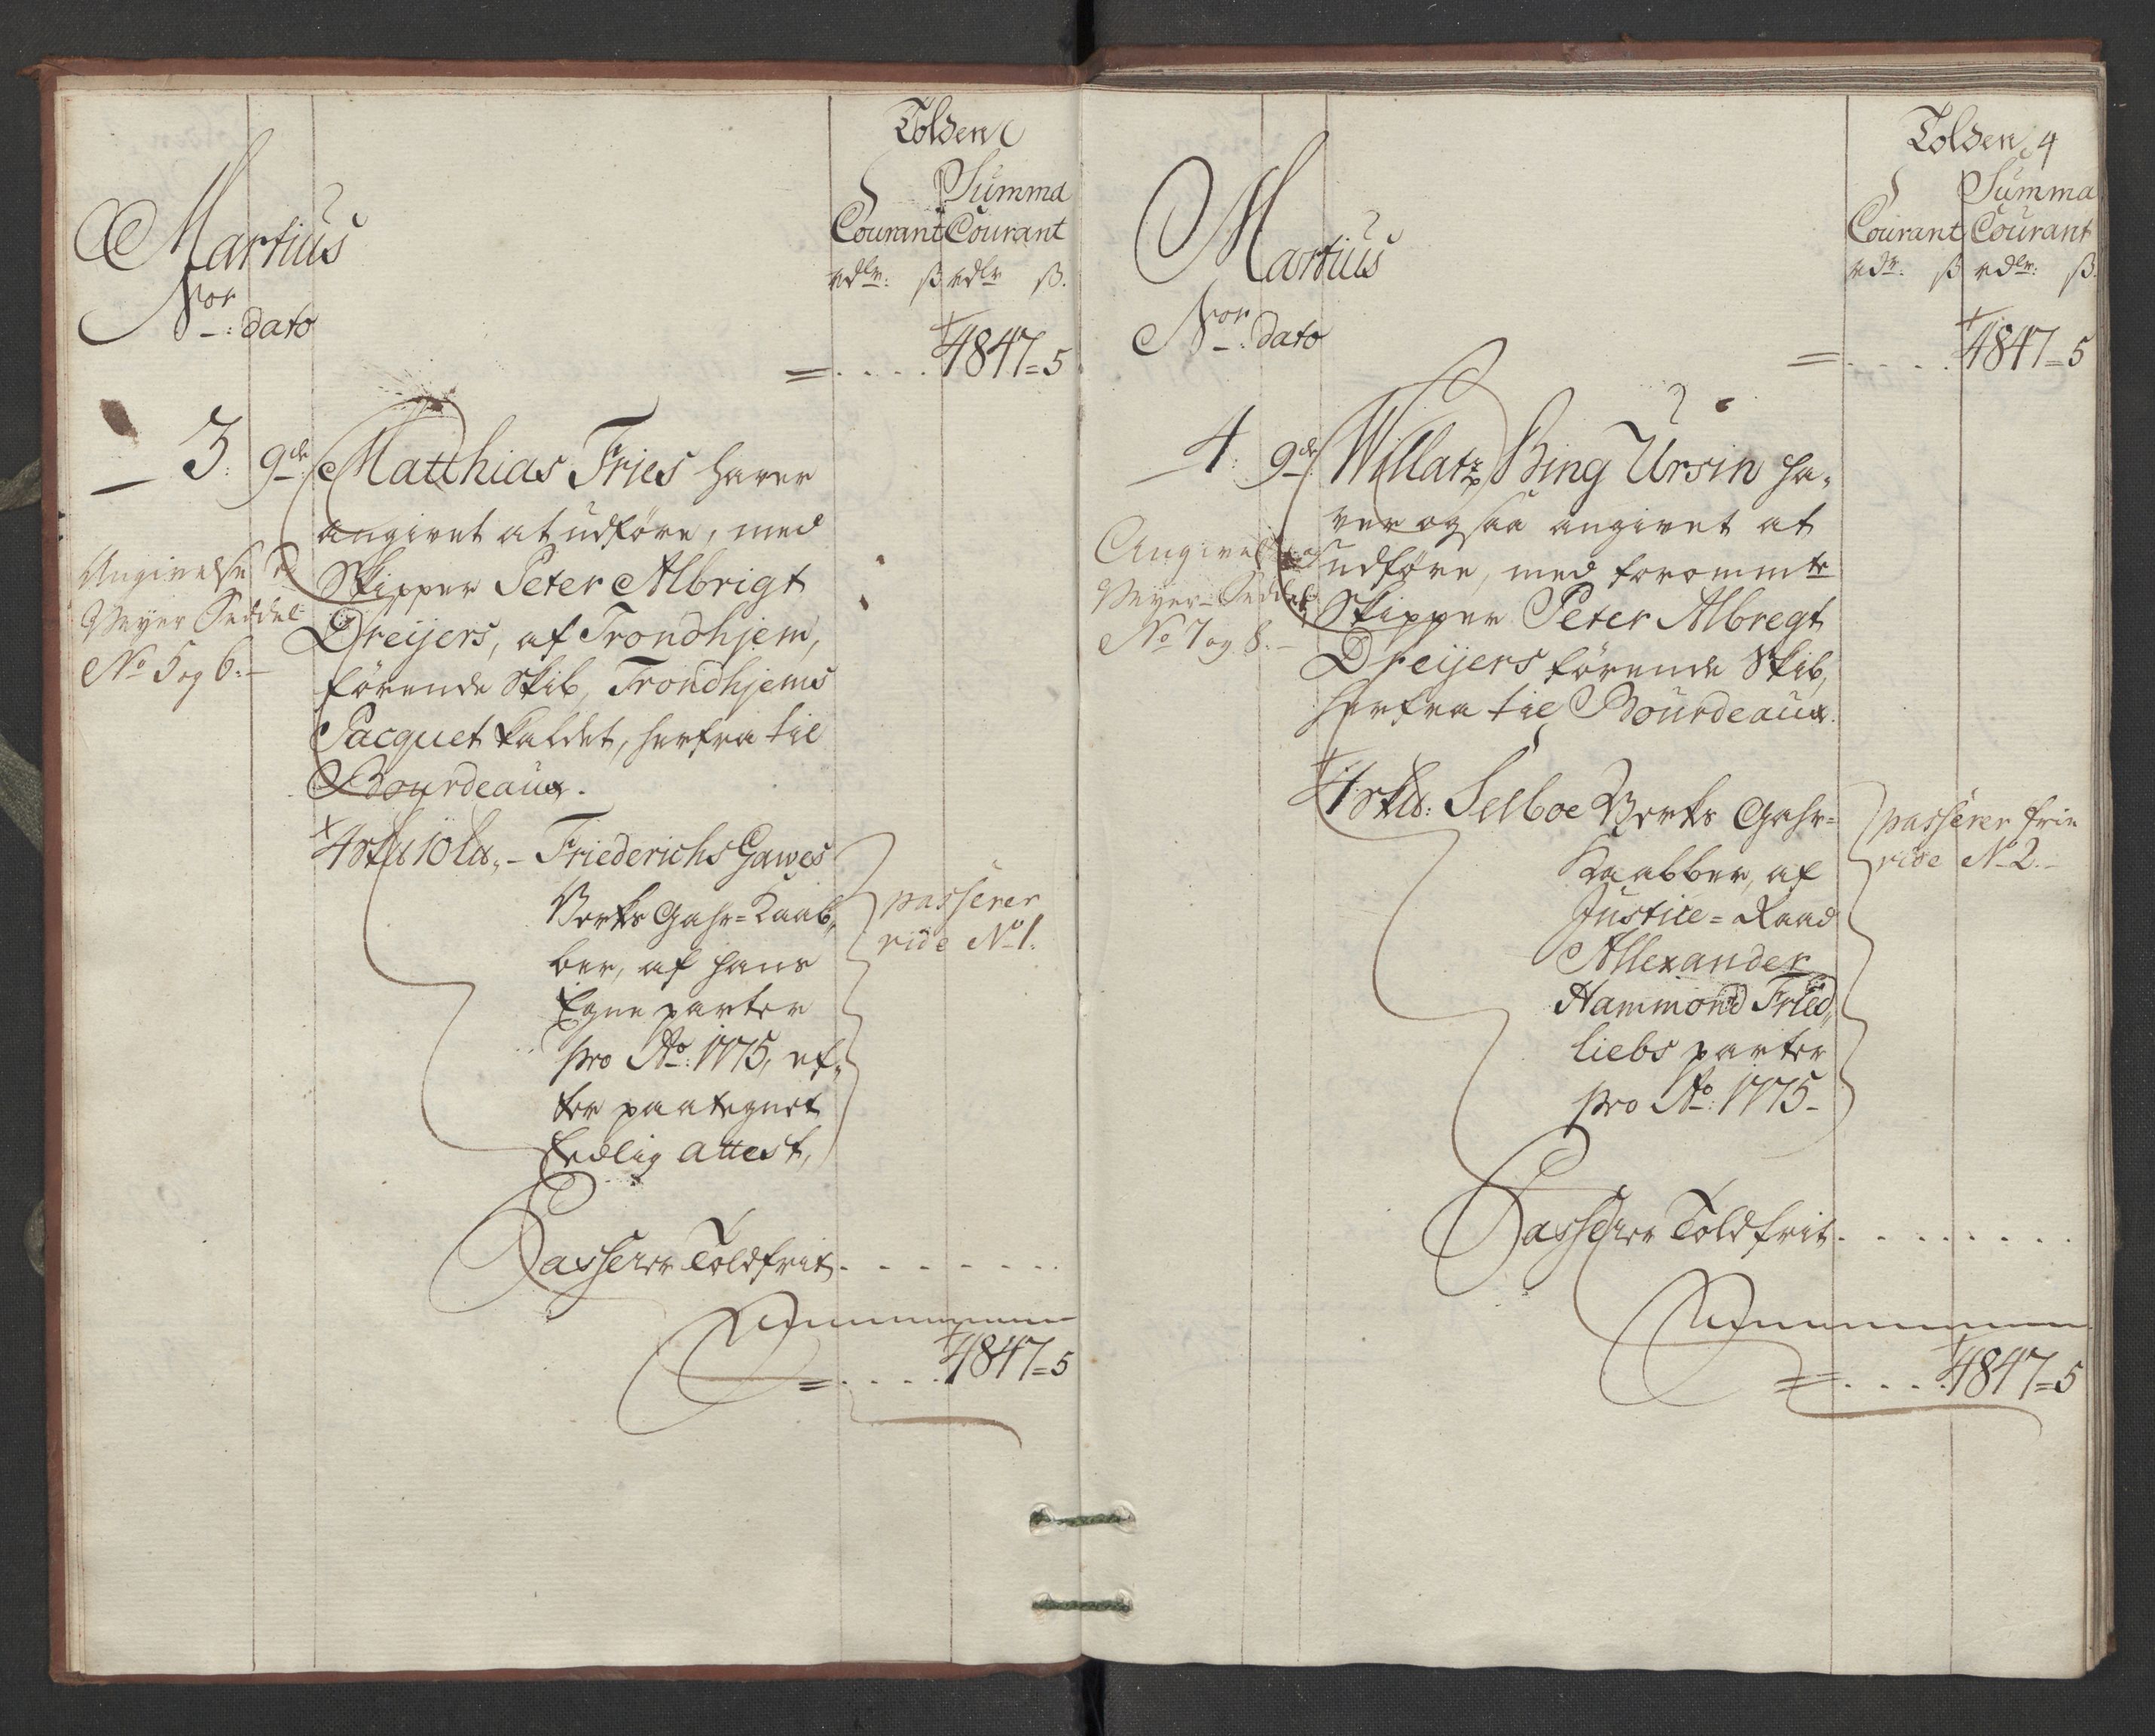 Tolden
Summa
Courant Courant
rdlr: ß rdlr ß.
Martius
Nor: dato
= . . . . 4847=5
3. 9de Matthias Fries haver
angivet at udføre, med
Skipper Peter Albrigt
Dreijers, af Trondhjem,
førende Skib, Trondhjems
Pacquet kaldet, herfra til
Bourdeaux.
Angivelse
Veyer Seddel
No 5 og 6.
4 skll 10 ll. – Friederichs Gawes
Verks Gahr=Kaab„
ber, af hans
Egne parter
pro Ao: 1775, ef„
ter paategnet
Eedlig attest,
passerer
vide No 1.
Passerer Toldfrit . . . . . .
= . . . . 4847=5
Tolden 4
Summa
Courant Courant
rdr: ß rdlr: ß.
Martius
Nor: dato
= . . . . 4847=5
4. 9de Willatz Bing Ursin ha„
ver ogsaa angivet at
udføre, med forommte
Skipper Peter Albregt
Dreijers førende Skib,
herfra til Bourdeaux.
Angivelse
Veyer-Seddel
No 7 og 8.
4 skll: Selboe Verks Gahr=
Kaabber, af
Justice=Raad
Allexander
Hammond Fried„
liebs parter
pro Ao: 1775-
passerer frie
vide No 2.
Passerer Toldfrit . . . . . . . .
= . . . . 4847=5